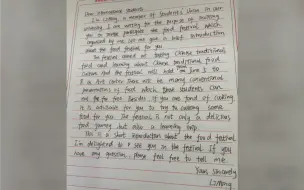 Dear international students,
I'm LiMing, a member of Students' Union in our
university. I am writing for the purpose of inviting
you to participate the food festival which
organized by me. Let me give a brief introduction
about the food festival for you.
The festival aimed at tasting Chinese traditional
food and learning about Chinese traditional food
culture. And the festival will held on June 1 to
in Art center. There will be many conventional
presentations of food which students can
eat for free. Besides, if you are fond of cooking,
it is advisable for you to try to cooking some
food for you. The festival is not only a delicious
food journey but also a learning trip.
This is a short introduction about the food festival.
I'm delighted to see you in the festival. If you
have any question, please feel free to tell me.
Yours sincerely
LiMing